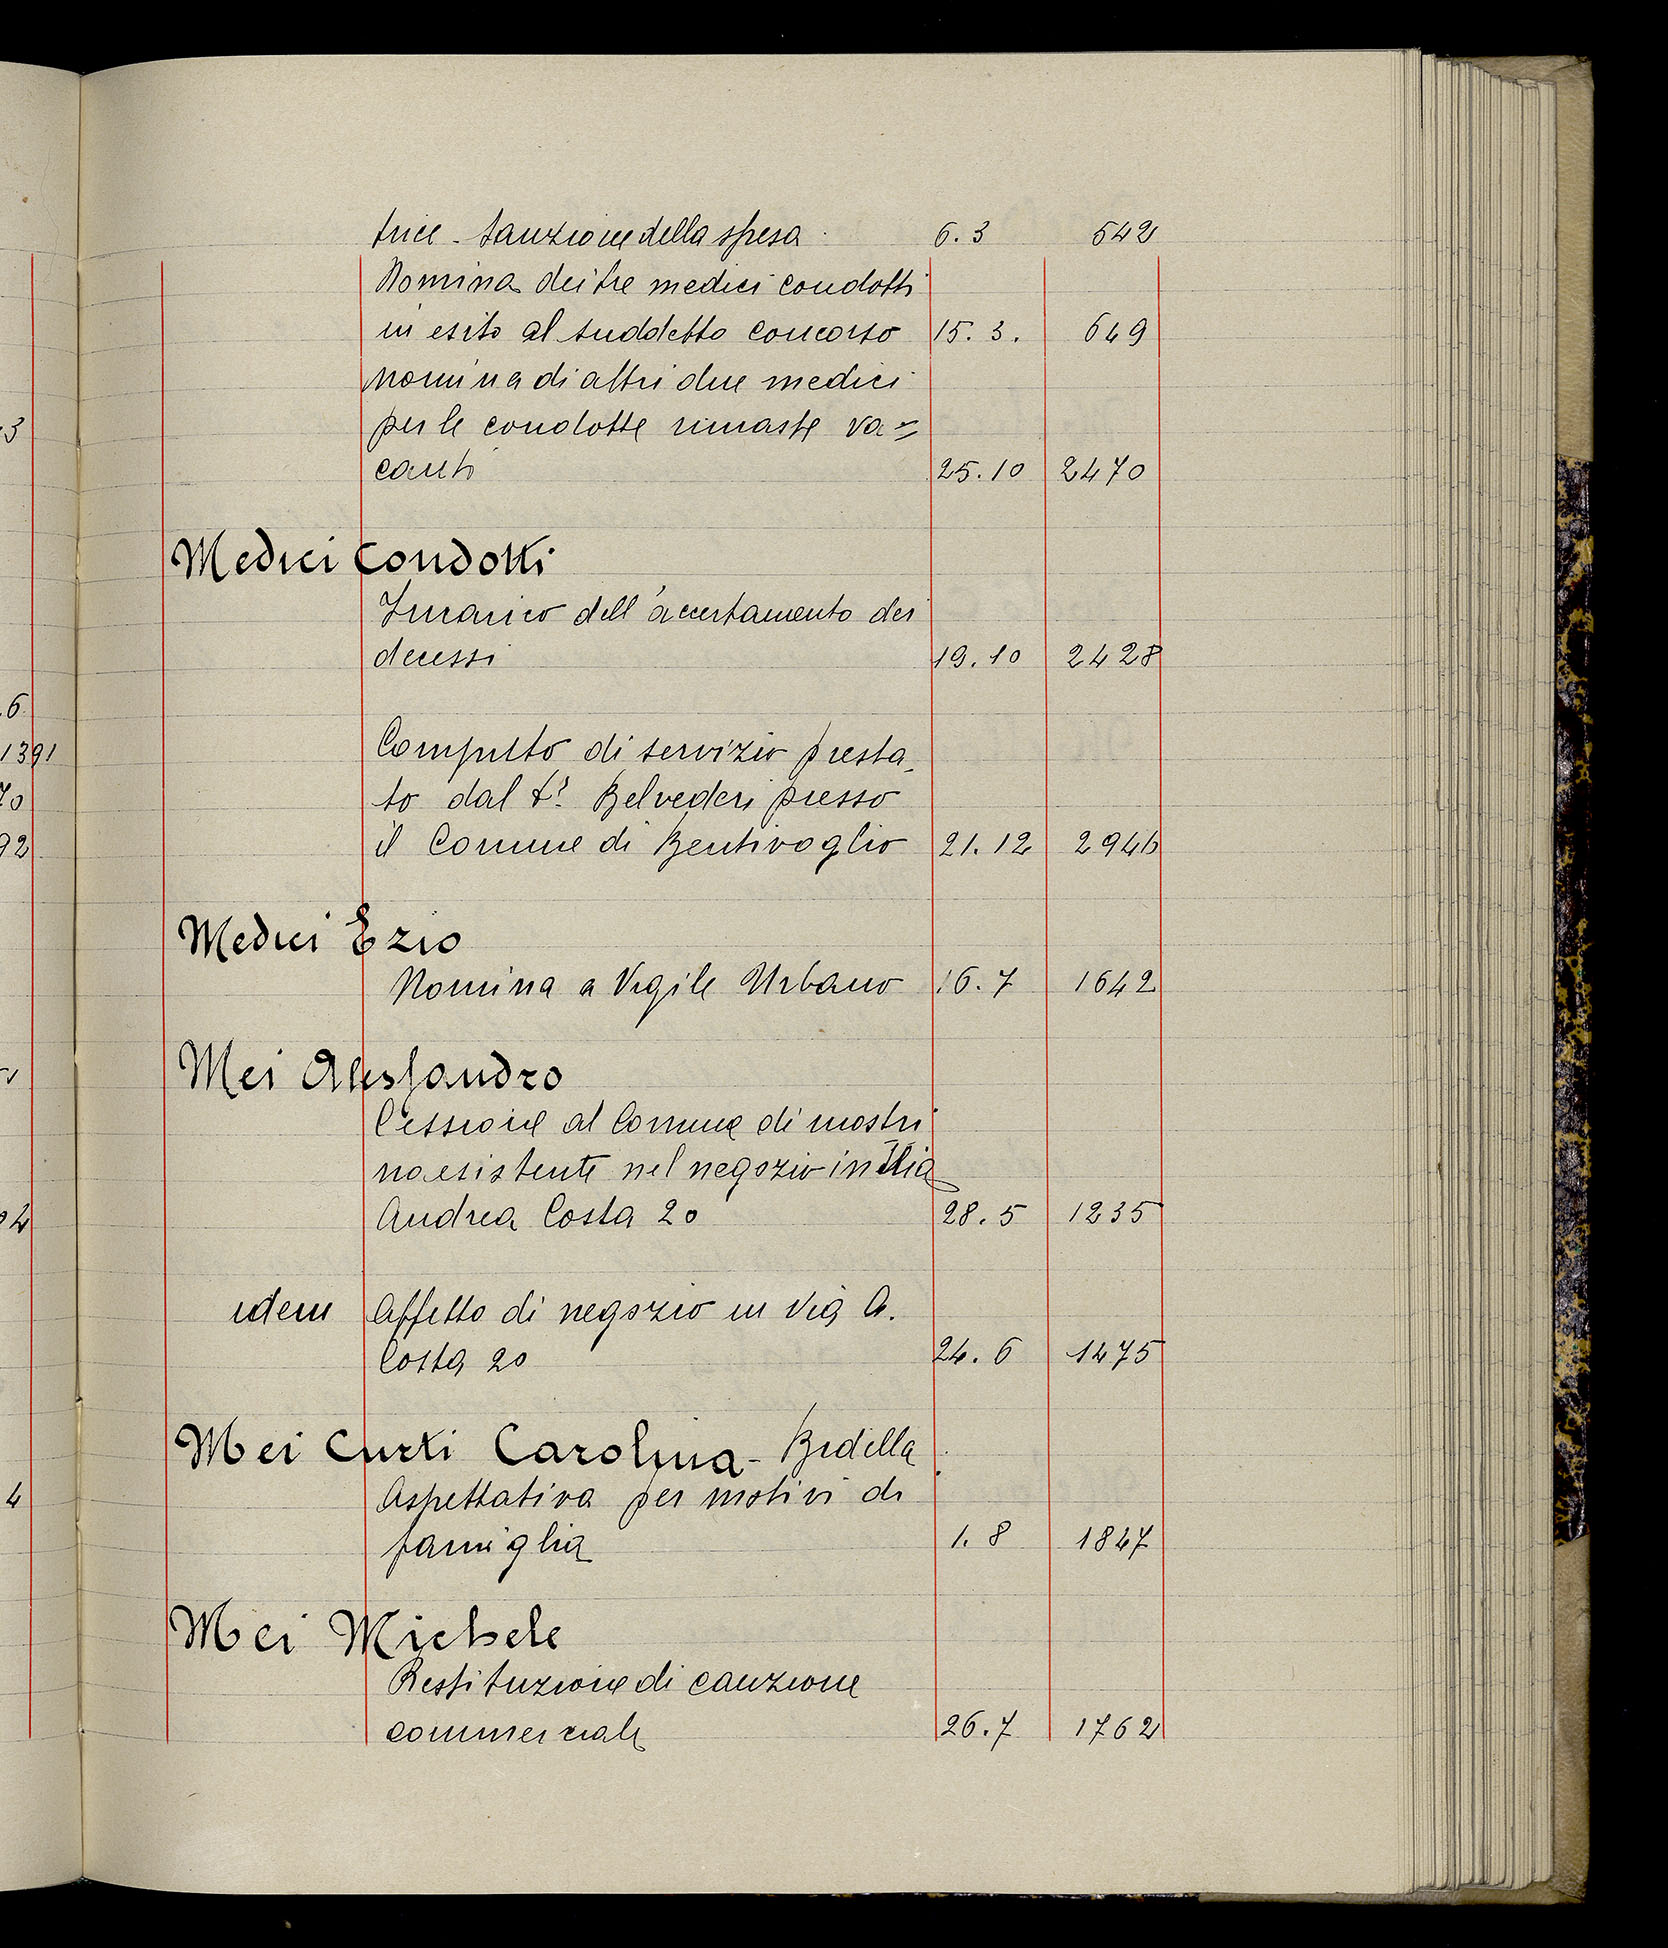 trice - Sanzione della spesa 6.3 542
Nomina dei tre medici condotti
in esito al suddetto concorso 15.3. 649
Nomina di altri due medici
per le condotte rimaste va=
canti 25.10 2470
Medici Condotti
Incarico dell'accertamento dei
decessi 19.10 2428
Computo di servizio presta-
to dal Dr. Belvederi presso
il Comune di Bentivoglio 21.12 2946
Medici Ezio
Nomina a Vigile Urbano 16.7 1642
Mei Alessandro
Cessione al Comune di mostri
no esistente nel negozio in Via
Andrea Costa 20 28.5 1235
idem Affitto di negozio in Via A.
Costa 20 24.6 1475
Mei Curti Carolina - Bidella
Aspettativa per motivi di
famiglia 1.8 1847
Mei Michele
Restituzione di cauzione
commerciale 26.7 1762
3
.6
1391
70
92
4